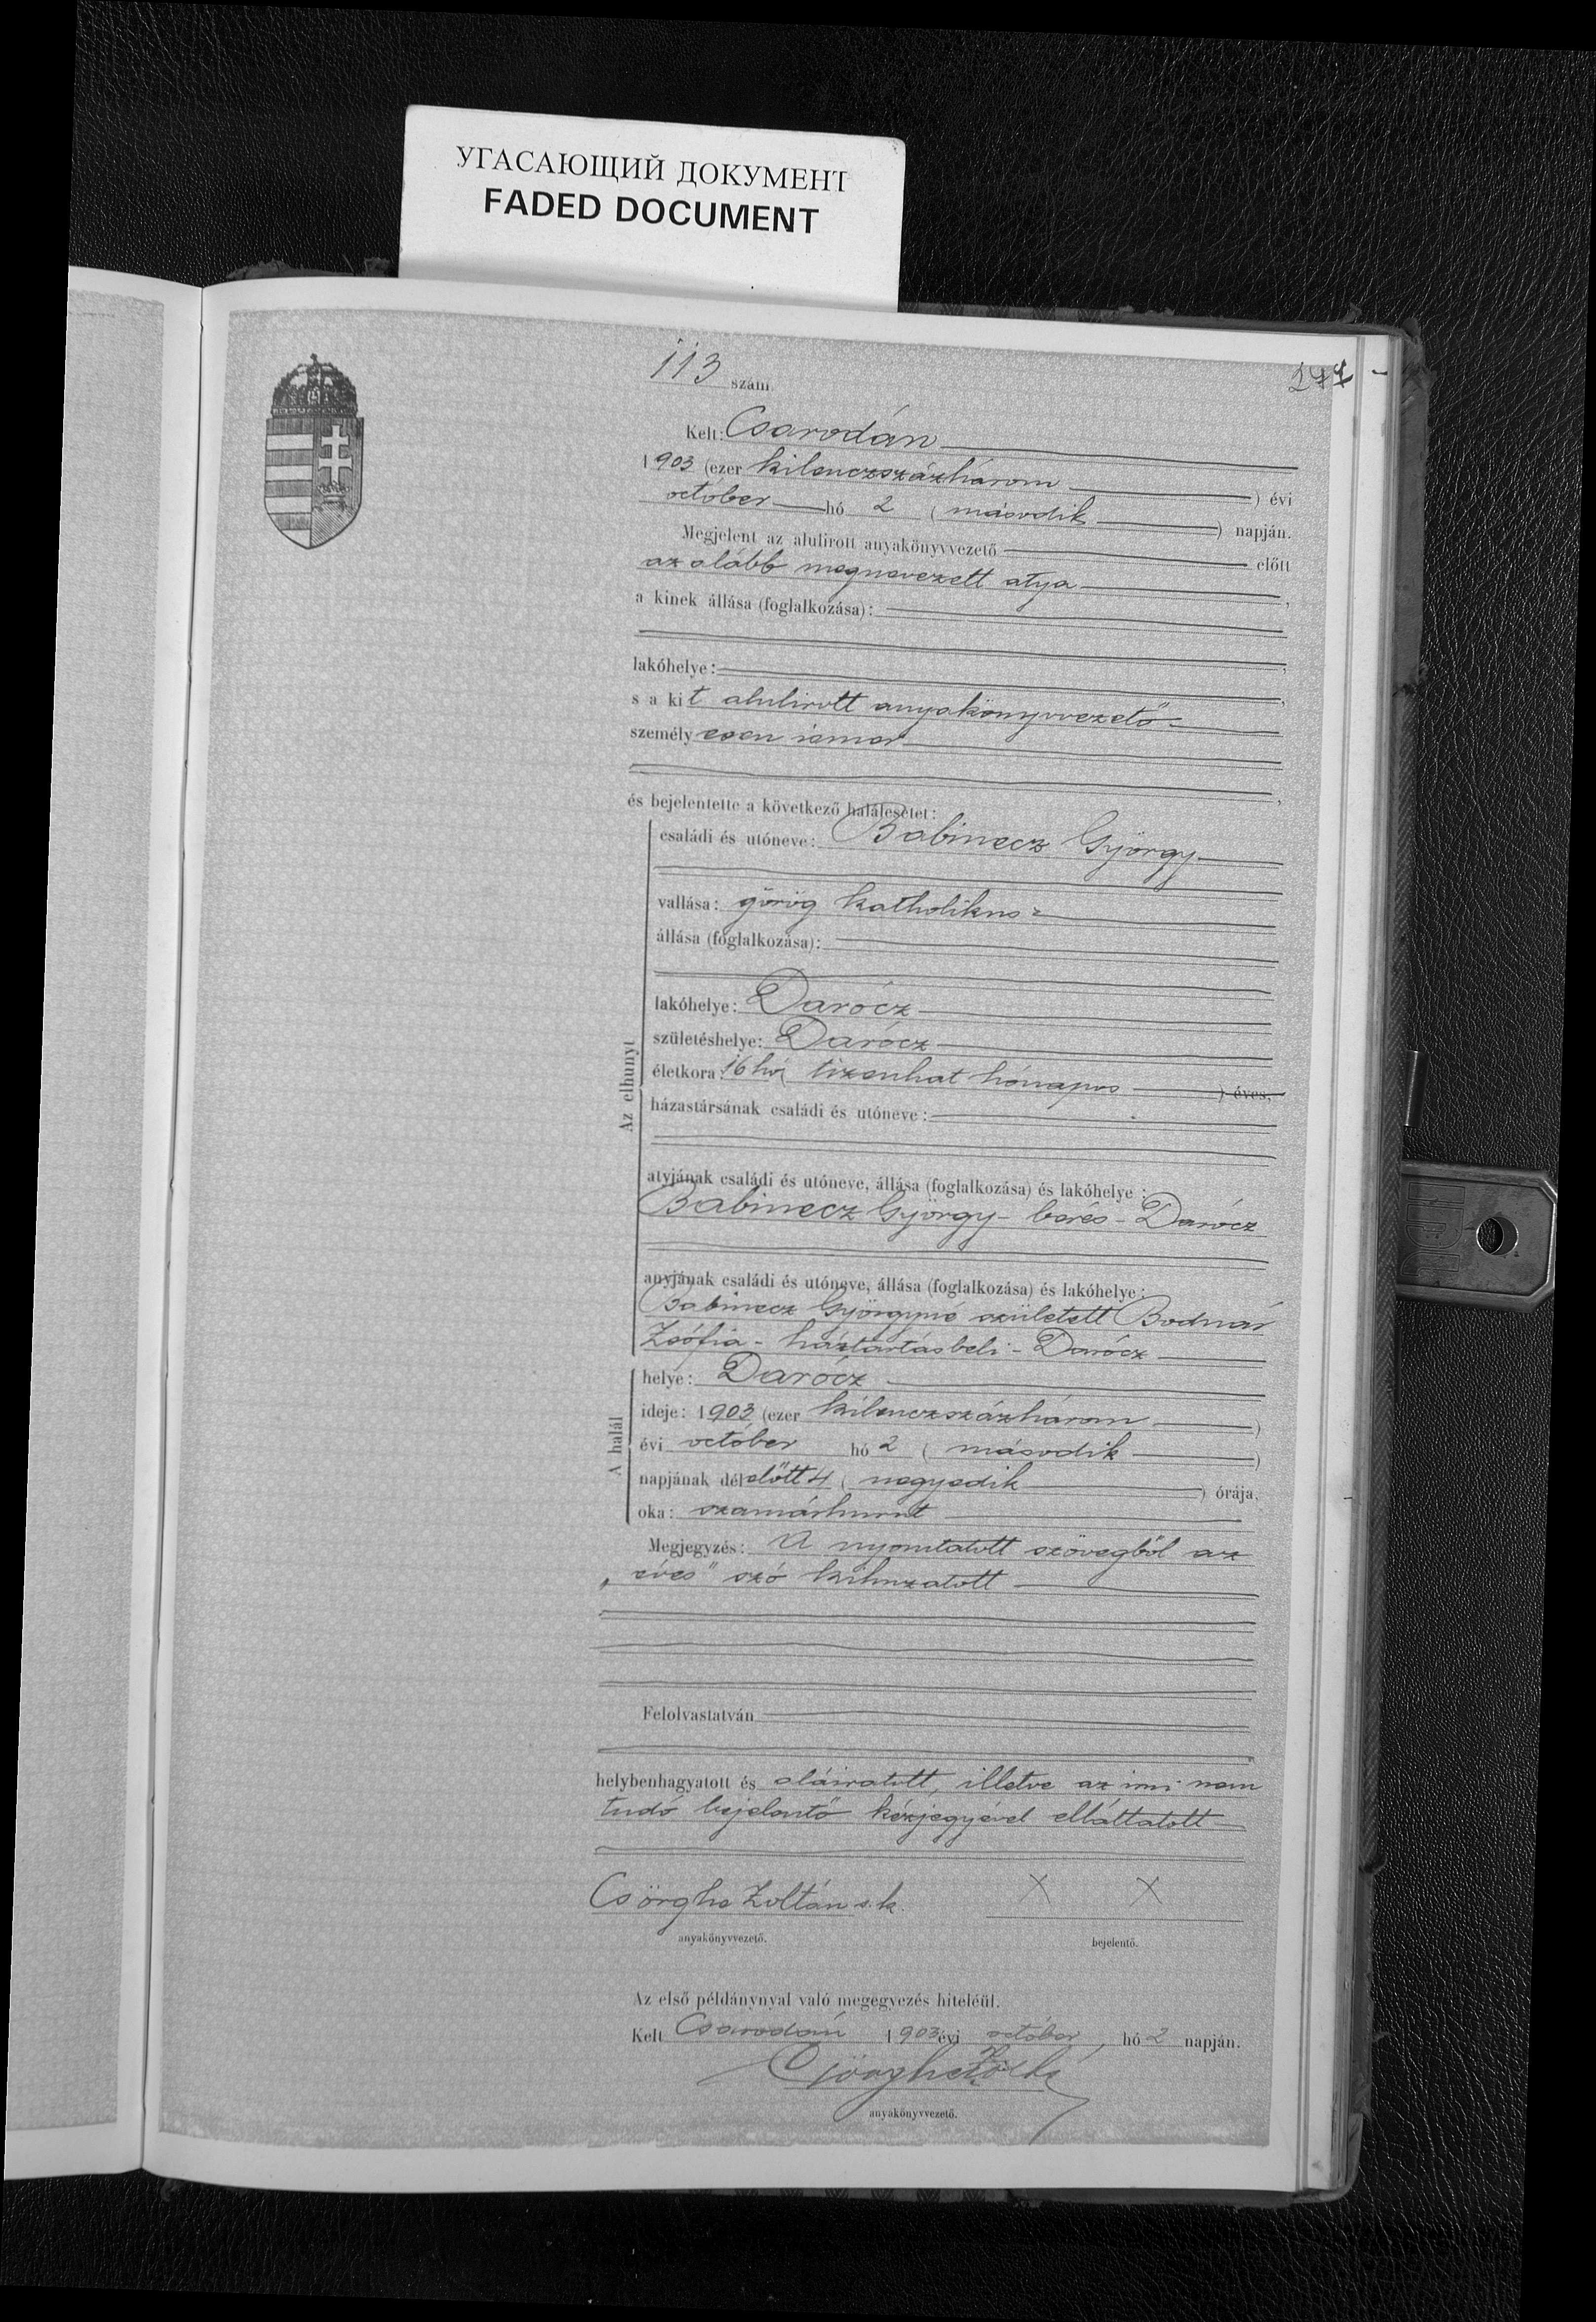 УГАСАЮЩИЙ ДОКУМЕНТ
FADED DOCUMENT
113 szám.
Kelt: Csarodán
1903 (ezer kilenczszázhárom) évi
október hó 2 (második) napján.
Megjelent az alulirott anyakönyvvezető előtt
az alább megnevezett atya,
a kinek állása (foglalkozása):
lakóhelye:
s a kit alulirott anyakönyvvezető
személyesen ismer
és bejelentette a következő halálesetet:
Az elhunyt
családi és utóneve: Babinecz György
vallása: görög katholikus
állása (foglalkozása):
lakóhelye: Darócz
születéshelye: Darócz
életkora: 16 hó (tizenhat hónapos) éves,
házastársának családi és utóneve:
atyjának családi és utóneve, állása (foglalkozása) és lakóhelye:
Babinecz György - béres - Darócz
anyjának családi és utóneve, állása (foglalkozása) és lakóhelye:
Babinecz Györgyné született Bodnár
Zsófia - háztartásbeli - Darócz
A halál
helye: Darócz
ideje: 1903 (ezer kilenczszázhárom)
évi október hó 2 (második)
napjának délelőtt 4 (negyedik) órája,
oka: szamárhurut
Megjegyzés: A nyomtatott szövegből az
„éves" szó kihuzatott
Felolvastatván
helybenhagyatott és aláiratott, illetve az irni nem
tudó bejelentő kézjegyével elláttatott
Csörghe Zoltán s.k. X X
anyakönyvvezető. bejelentő.
Az első példánynyal való megegyezés hiteléül.
Kelt Csarodán 1903 évi október hó 2 napján.
Csörghe
anyakönyvvezető.